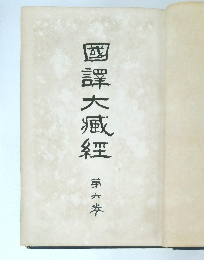 國譯大藏經
第六卷